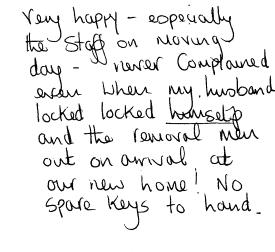 Very happy - especially
the Staff on moving
day - never Complained
even when my husband
locked locked himself
and the removal men
out on arrival at
our new home! No
Spare Keys to hand.